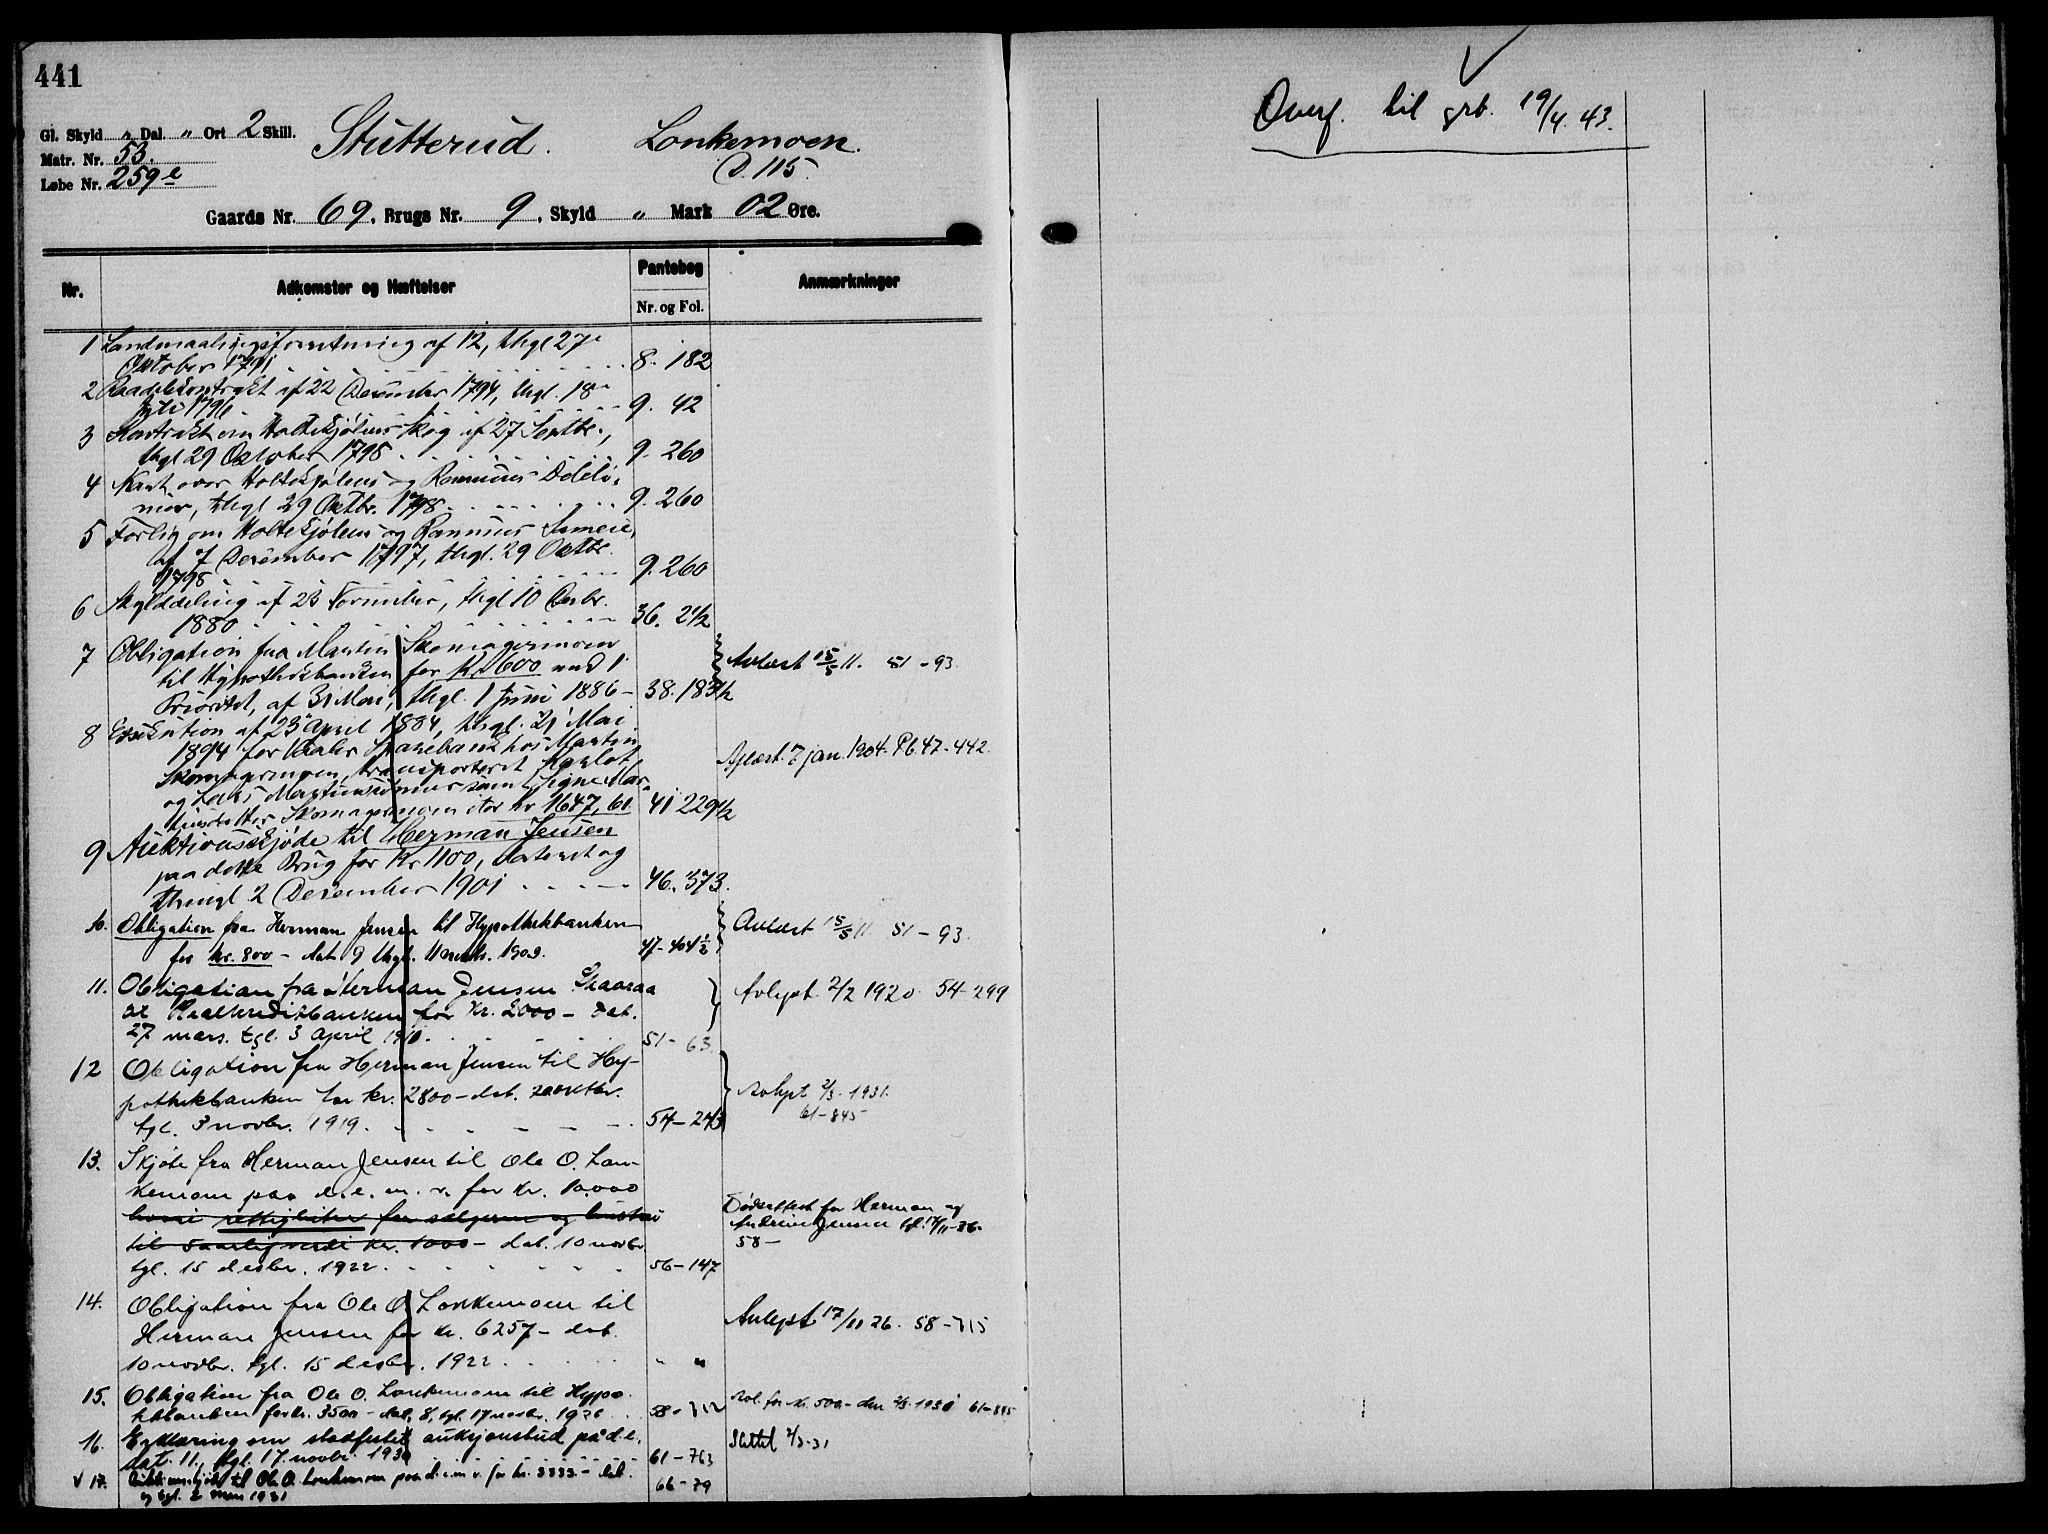 441
Gl. Skyld „ Dal. „ Ort 2 Skill.
Stutterud. Lonkemoen.
Matr. Nr. 53.
D. 115.
Løbe Nr. 259 e
Gaards Nr. 69, Brugs Nr. 9, Skyld „ Mark 02 Øre.
Nr. Adkomster og Hæftelser Pantebog Nr. og Fol. Anmærkninger
1 Landmaalingsforretning af 12, thgl 27
Oktober 1791 8. 182
2 Kontrakt af 22 December 1794, thgl. 18
1796 9. 42
3 Kontrakt om Holtekjølens skog af 27 Septbr.,
thgl 29 Oktober 1798 9. 260
4 Kart over Holtekjølens og
thgl 29 Oktbr. 1798 9. 260
5 Forlig om Holtekjølens og
af 7 December 1797, thgl. 29 Oktbr.
1798 9. 260
6 Skylddeling af 23 November, thgl 10 Decbr.
1880 36. 2½
7 Obligation fra Martin Skomagermoen
til Hypothekbanken for Kr. 600 med 1
Prioritet, af 31 Mai, thgl. 1 Juni 1886 – 38. 183½
Avlæst 15/5 11. 51 – 93.
8 Exekution af 23 April 1884, thgl. 21 Mai
1894 for Sparebank hos Martin
Skomagermoen, transporteret
og Martinsønner samt Signe Mar-
tinsdatter Skomagermoen stor kr 1647,61 41 229½
Aflæst 7 jan. 1904. Pb. 47 - 442.
9 Auktionsskjøde til Herman Jensen
paa dette Brug for Kr 1100, dateret og
thingl 2 December 1901 46. 373.
10. Obligation fra Herman Jensen til Hypothekbanken
for kr. 800 – dat. 9 thgl. 11 1903. 47-404½
Avlæst 15/5 11 51 – 93.
11. Obligation fra Herman Jensen Skaaraa
til Realkreditbanken for Kr. 2000 – dat.
27 mars. tgl. 3 April 1911. 51 – 63.
Avlyst 2/2 1920. 54-299
12 Obligation fra Herman Jensen til Hy-
pothekbanken for kr. 2800 – dat. oktbr.
tgl. 3 novbr. 1919. 54 – 243
Avlyst 2/3. 1931.
61 – 845
13. Skjøte fra Herman Jensen til Ole O. Lon-
kemoen paa d. e. m. v. for kr. 10,000
rettigheter for sælgeren og hustru
til 5 aarlig verdi kr. 1000 – dat. 10 novbr
tgl. 15 desbr. 1922. 56 – 147
Dødsattest for Herman og
Jensen tgl. 17/11-26.
58 –
14. Obligation fra Ole O. Lonkemoen til
Herman Jensen for kr. 6257 – dat.
10 novbr. tgl. 15 desbr. 1922. „ „
Avlyst 17/11 26. 58 – 715
15. Obligation fra Ole O. Lonkemoen til Hypo-
tekbanken for kr. 3500 – dat. 8, tgl. 17 novbr. 1926 58 – 712
Avl. for kr. 500 – den 2/3 1931 61 – 845
16. Erklæring om stadfestet auksjonsbud på d. e.
dat. 11, tgl. 17. novbr. 1930 61 – 763
Slettet 2/3-31
v 17. Auksjonsskjøte til Ole O. Lonkemoen paa d. e. m. v. for kr. 3333 – dat.
og tgl. 2 mars 1931 66 – 79
Overf. til grb. 19/4. 43.